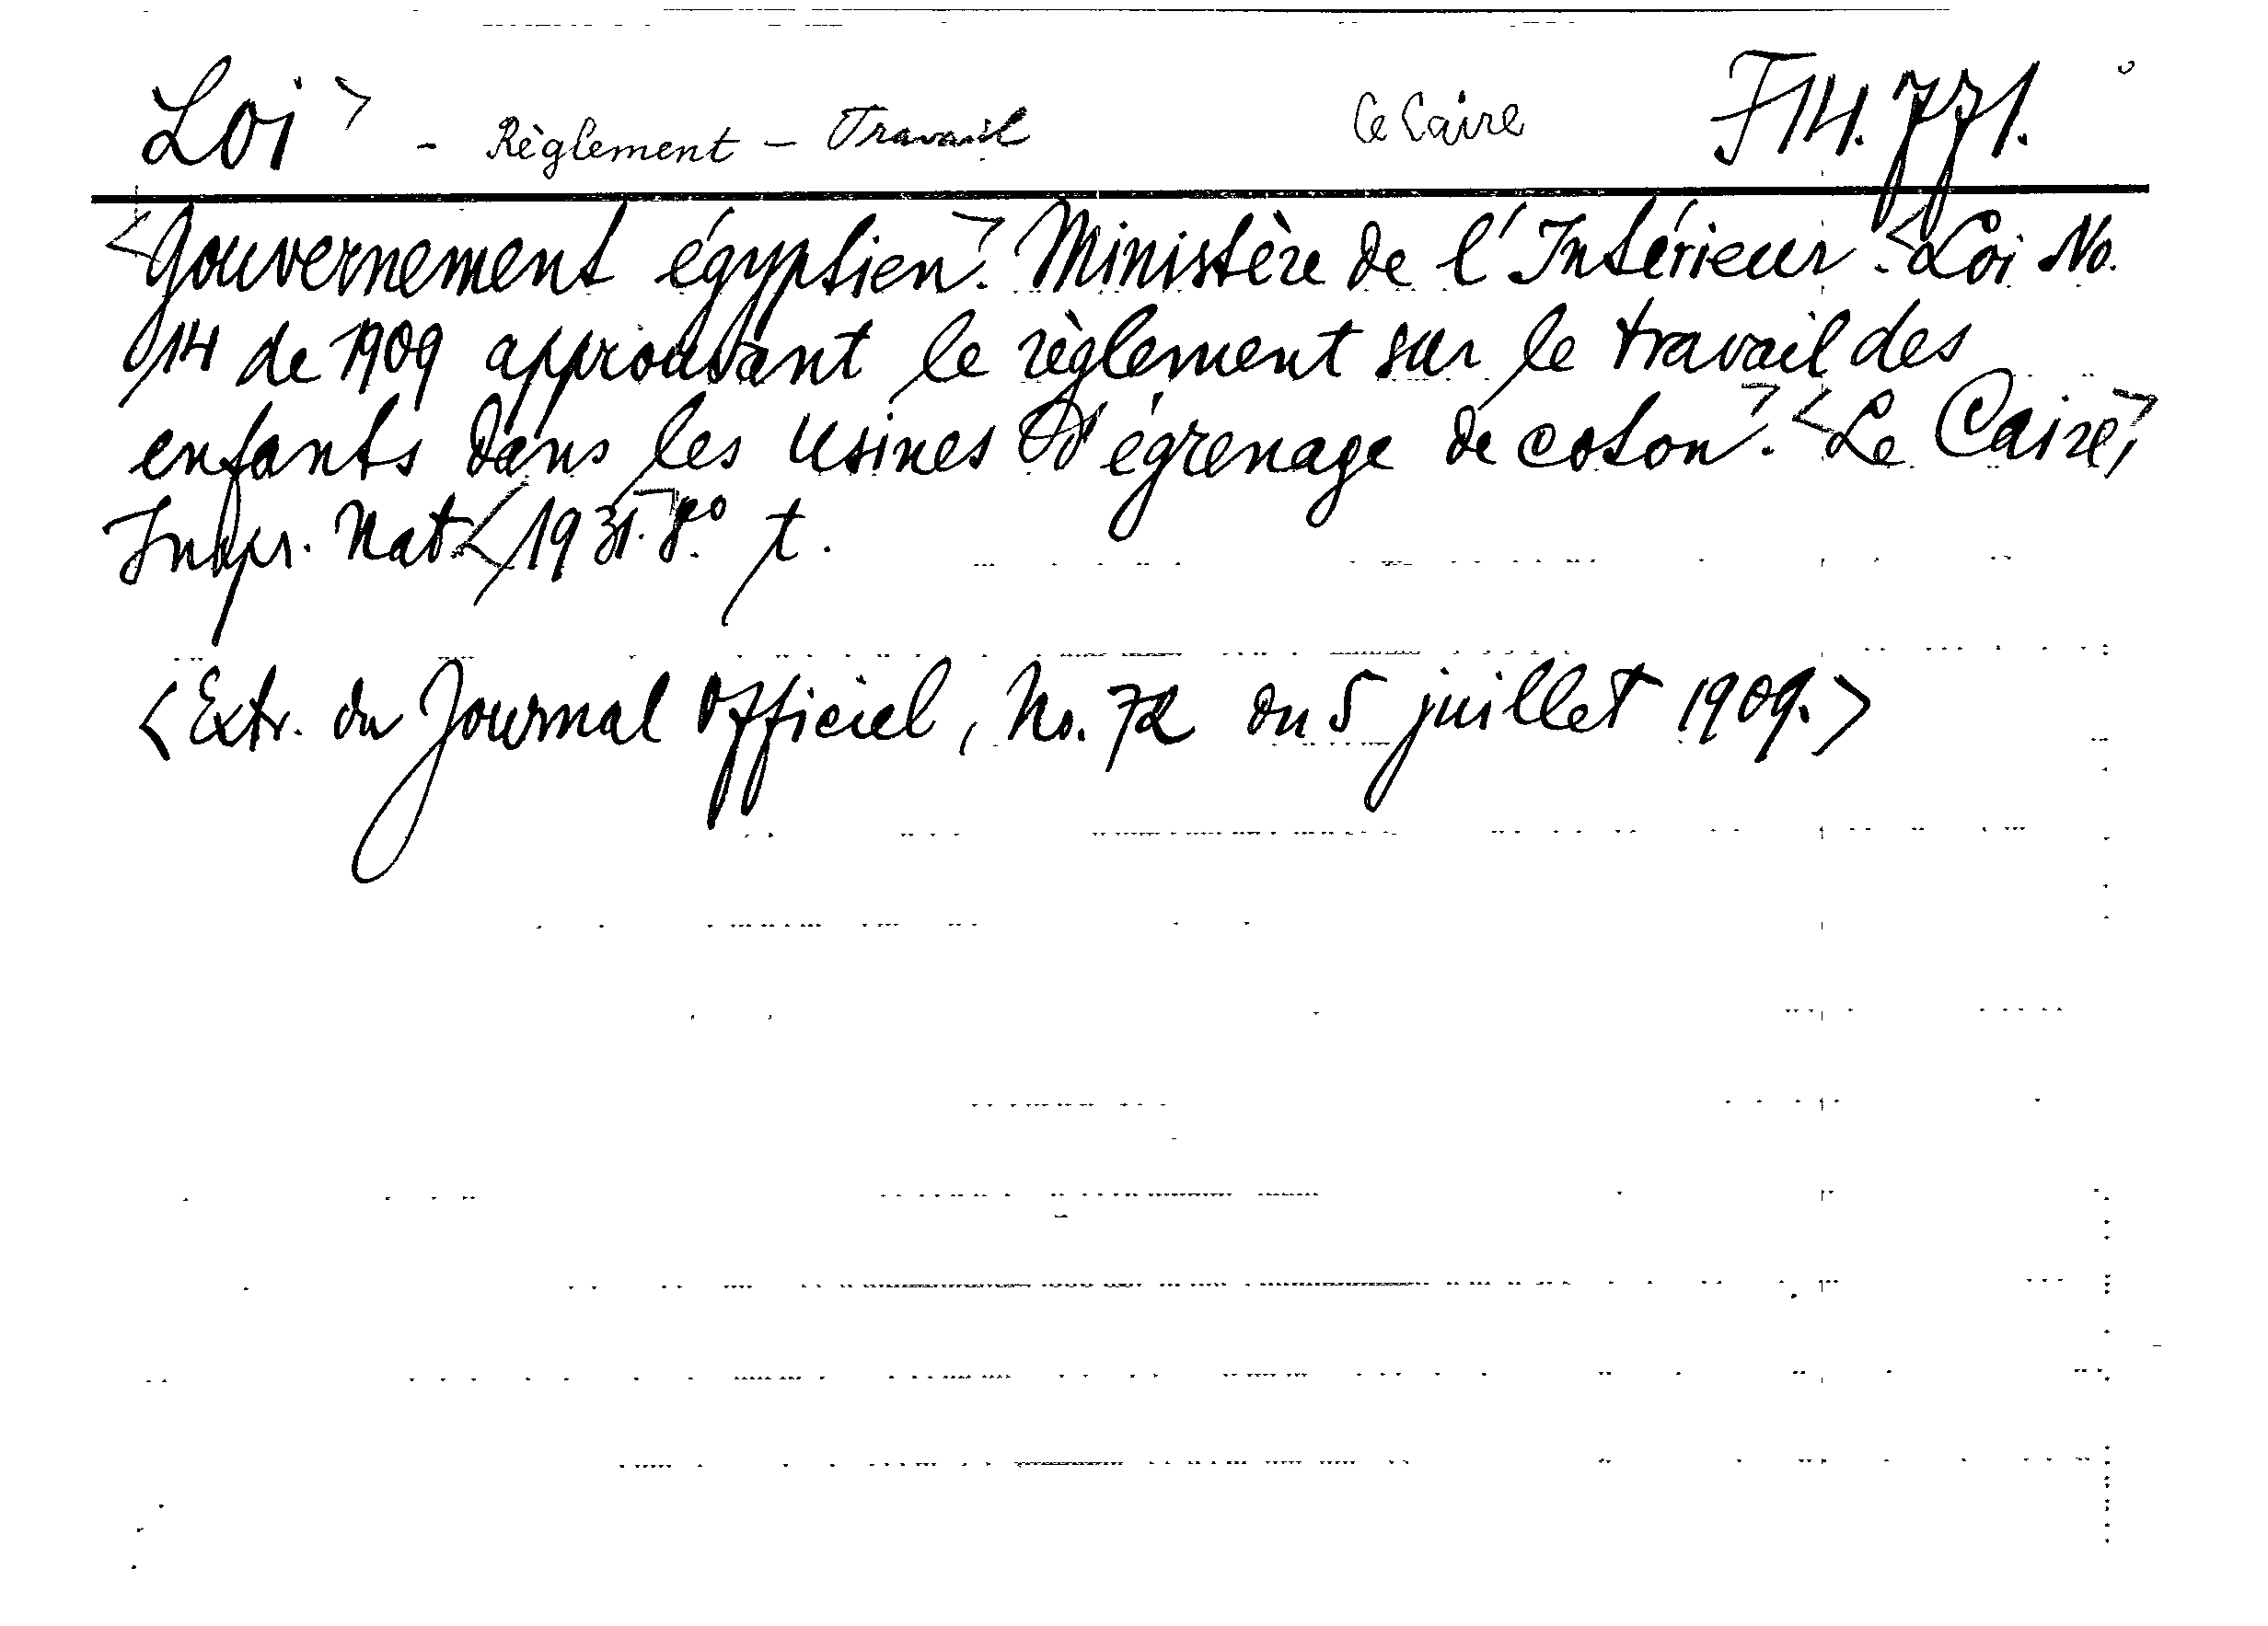 Loi> - Règlement - Travail Le Caire F 14.771.
<Gouvernement égyptien>. Ministère de l'Intérieur. <Loi No.
14 de 1909 approuvant le règlement sur le travail des
enfants dans les usines d'égrenage de coton>. <Le Caire>,
Impr. Nat. <1931.> 8° t.
<Extr. du Journal Officiel, No. 72 du 5 juillet 1909.>